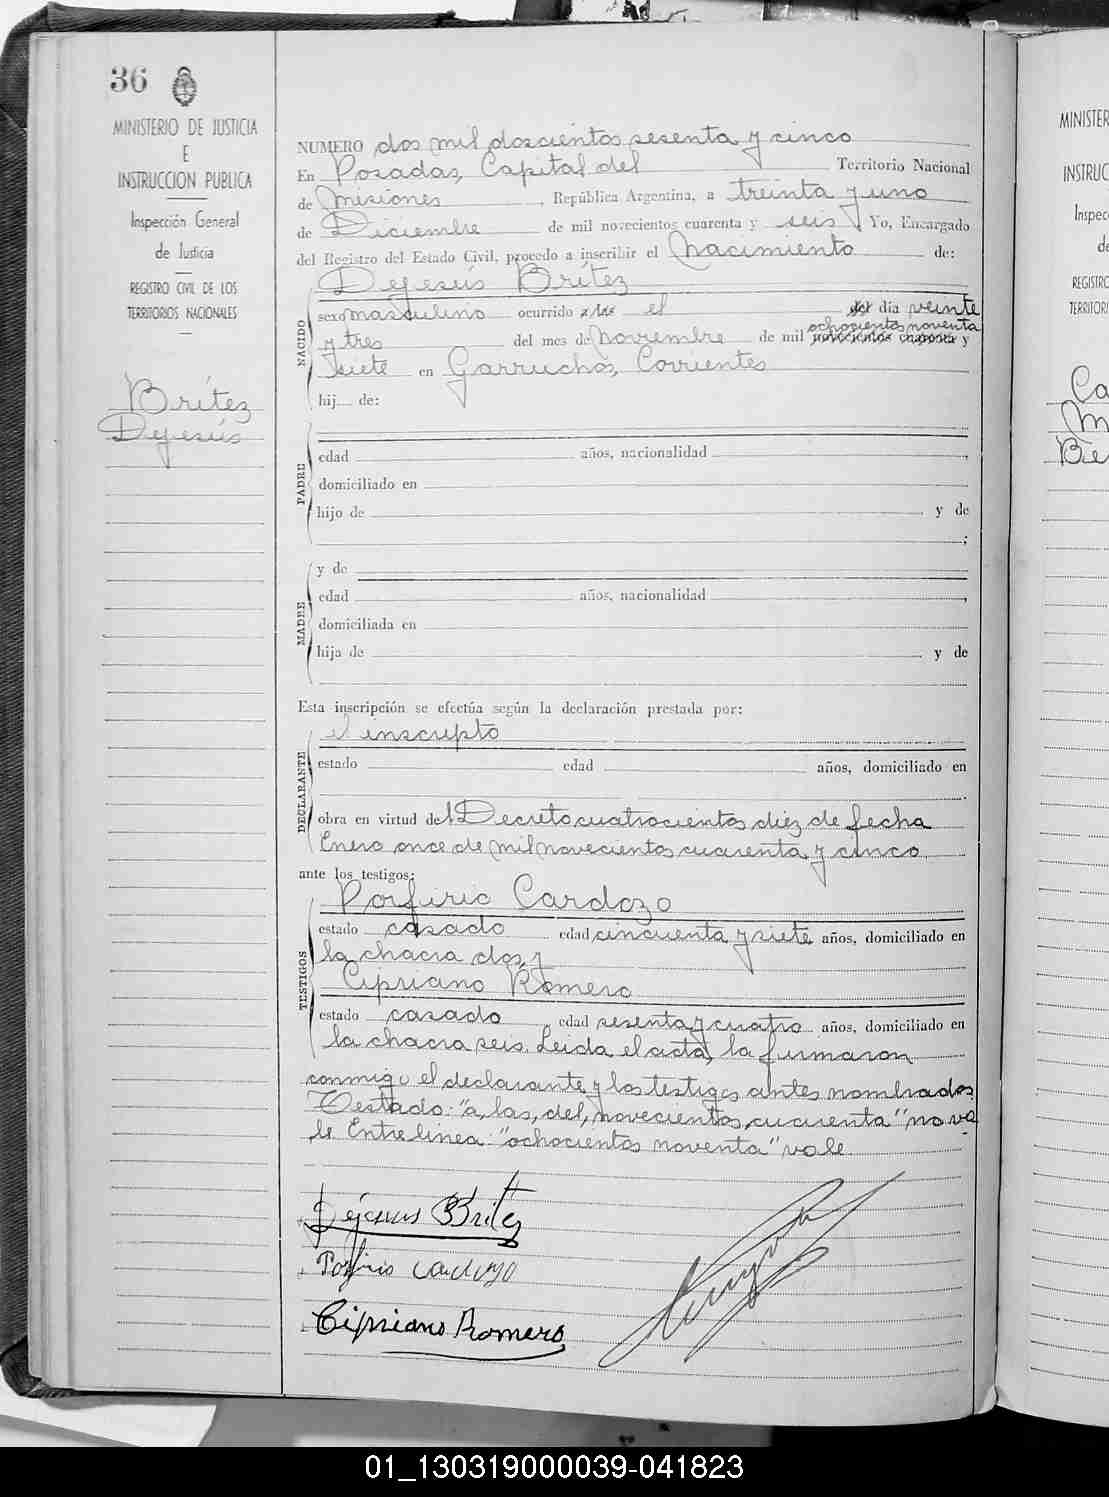 36
MINISTERIO DE JUSTICIA
E
INSTRUCCION PUBLICA
Inspección General
de Justicia
REGISTRO CIVIL DE LOS
TERRITORIOS NACIONALES
Brítez
Dejesús
NUMERO dos mil doscientos sesenta y cinco
En Posadas, Capital del Territorio Nacional
de Misiones, República Argentina, a treinta y uno
de Diciembre de mil novecientos cuarenta y seis Yo, Encargado
del Registro del Estado Civil, procedo a inscribir el Nacimiento de:
NACIDO
Dejesús Brítez
sexo masculino ocurrido a las el del día veinte
ochocientos noventa
y tres del mes de Noviembre de mil novecientos cuarenta y
siete en Garruchos, Corrientes
hij de:
PADRE
edad años, nacionalidad ,
domiciliado en
hijo de y de
;
MADRE
y de
edad años, nacionalidad ,
domiciliada en
hija de y de
Esta inscripción se efectúa según la declaración prestada por:
DECLARANTE
el inscripto
estado edad años, domiciliado en
.
obra en virtud del Decreto cuatrocientos diez de fecha
Enero once de mil novecientos cuarenta y cinco
ante los testigos:
TESTIGOS
Porfirio Cardozo
estado casado edad cincuenta y siete años, domiciliado en
la chacra dos, y
Cipriano Romero
estado casado edad sesenta y cuatro años, domiciliado en
la chacra seis. Leida el acta, la firmaron
conmigo el declarante y los testigos antes nombrados.
Testado: "a, las, del, novecientos, cuarenta" no va
le. Entrelinea: "ochocientos noventa" vale
Dejesus Britez
Porfirio Cardozo
Cipriano Romero
MINISTER
INSTRUC
Inspec
de
REGISTRO
TERRITOR
Ca
M
Bie
01_130319000039-041823